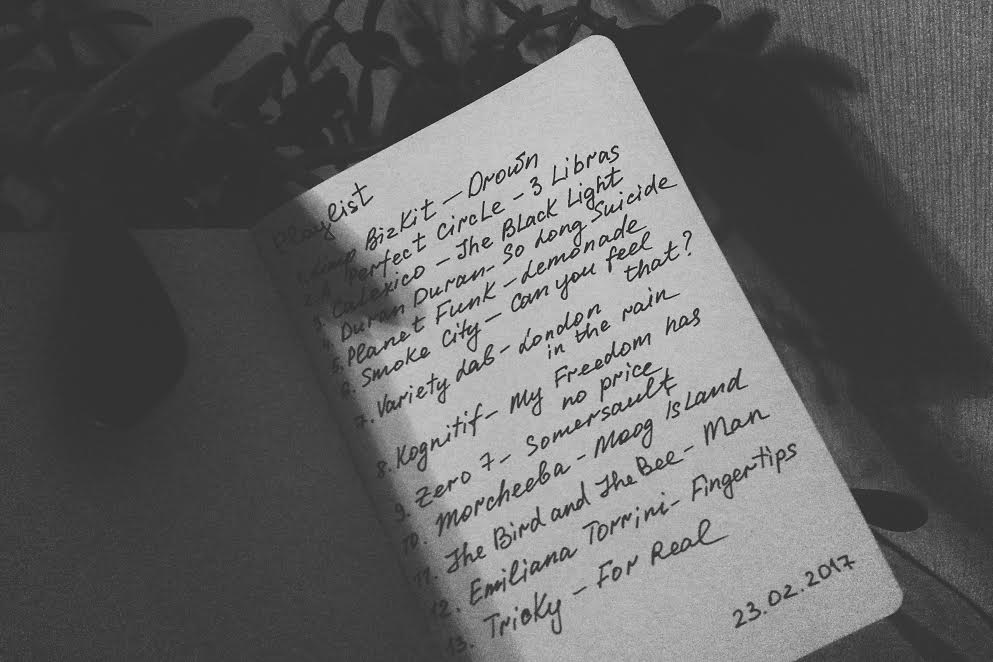 Playlist
1. Limp Bizkit – Drown
2. A Perfect Circle – 3 Libras
3. Calexico – The Black Light
4. Duran Duran – So Long Suicide
5. Planet Funk – Lemonade
6. Smoke City – Can you feel
that?
7. Variety Lab – London
in the rain
8. Kognitif – My Freedom has
no price
9. Zero 7 – Somersault
10. Morcheeba – Moog Island
11. The Bird and The Bee – Man
12. Emiliana Torrini – Fingertips
13. Tricky – For Real
23.02.2017